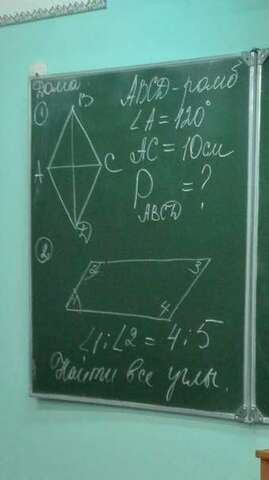 Дома
① B
ABCD - ромб
∠A = 120°
A C
AC = 10 см
P ABCD = ?
D
②
2 3
1 4
∠1 : ∠2 = 4 : 5
Найти все углы.